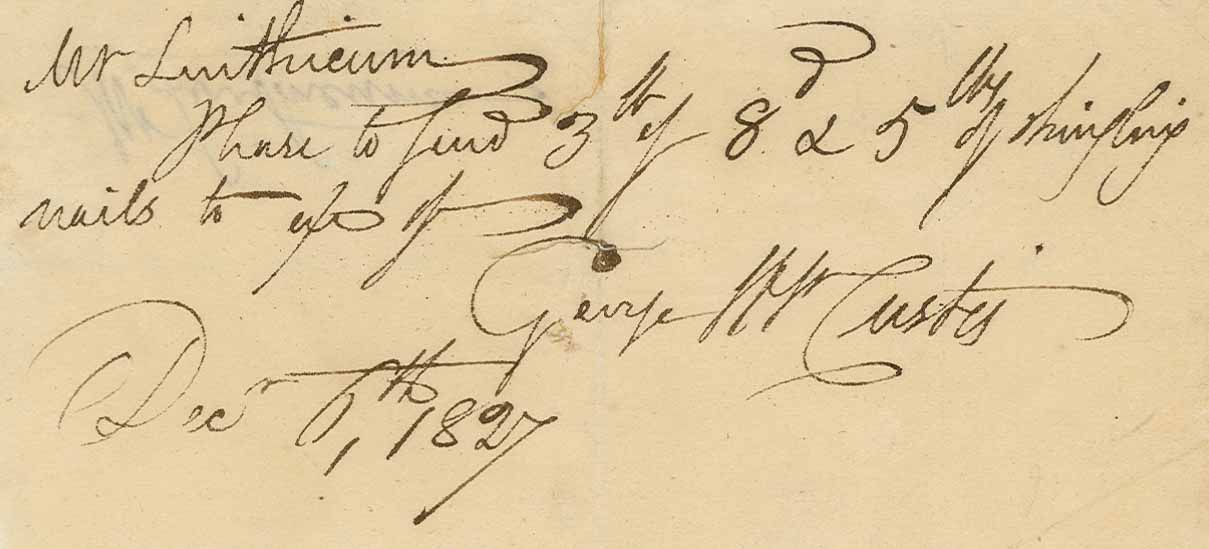 Mr Linthicum
Please to send 3 lb of 8d & 5 lbs of shingling
nails to a/c of
George W P Custis
Decr 6th, 1827